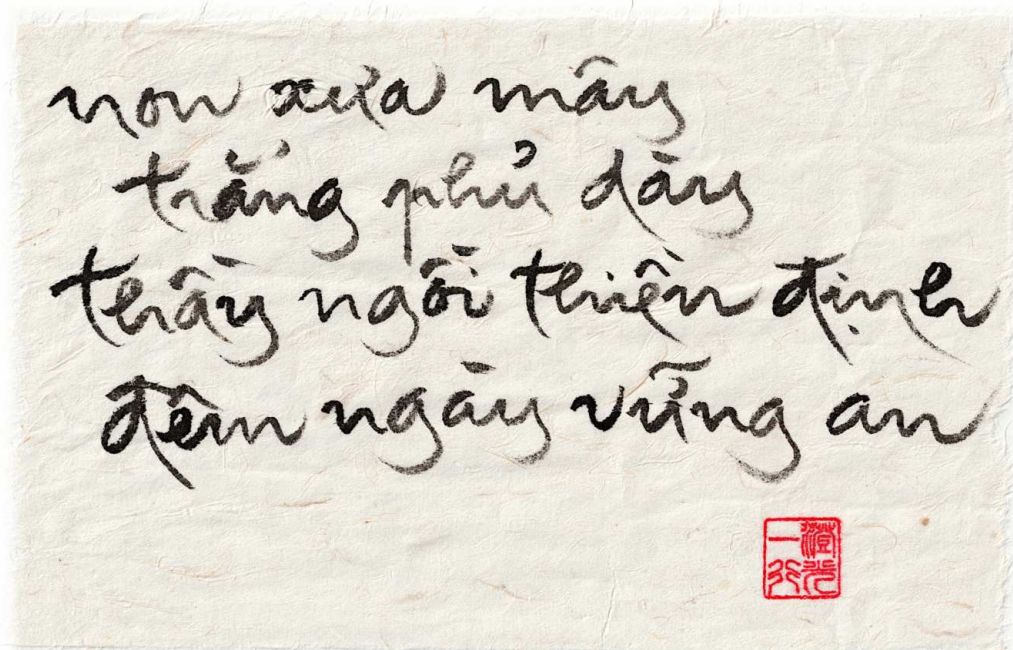 non xưa mây
trắng phủ dày
thầy ngồi thiền định
đêm ngày vững an
澄光
一行